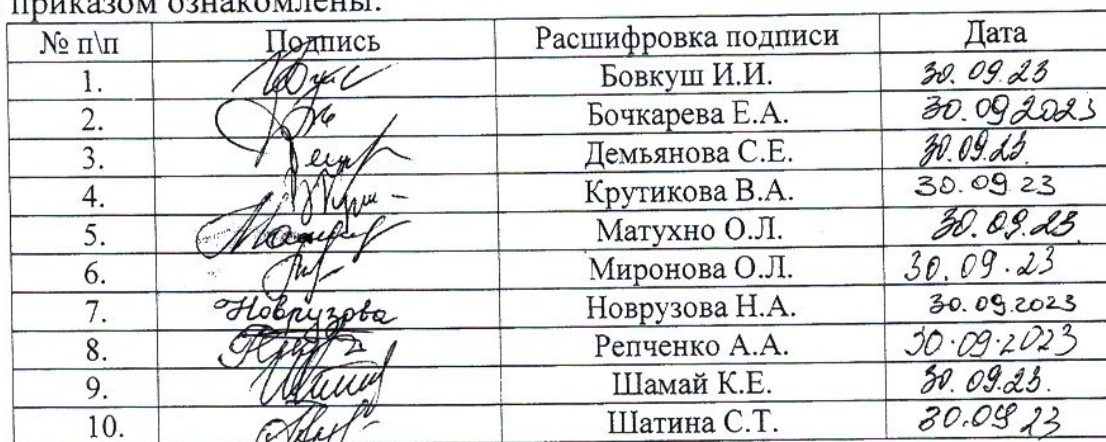 приказом ознакомлены:
№ п\п Подпись Расшифровка подписи Дата
1. Бовкуш И.И. 30.09.23
2. Бочкарева Е.А. 30.09.2023
3. Демьянова С.Е. 30.09.23.
4. Крутикова В.А. 30.09.23
5. Матухно О.Л. 30.09.23
6. Миронова О.Л. 30.09.23
7. Новрузова Новрузова Н.А. 30.09.2023
8. Репченко А.А. 30.09.2023
9. Шамай К.Е. 30.09.23.
10. Шатина С.Т. 30.09.23